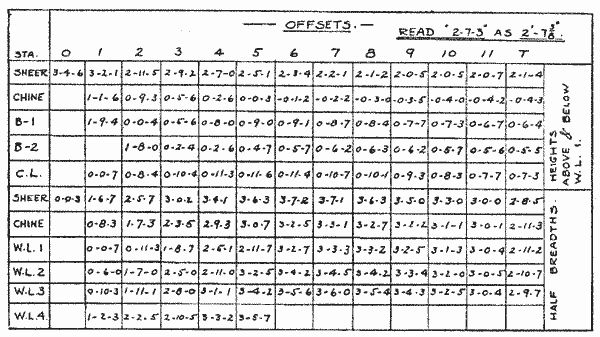 OFFSETS. READ "2-7-3" AS 2'-7 3/8".
STA. 0 1 2 3 4 5 6 7 8 9 10 11 T
SHEER 3-4-6 3-2-1 2-11-5 2-9-2 2-7-0 2-5-1 2-3-4 2-2-1 2-1-2 2-0-5 2-0-5 2-0-7 2-1-4
CHINE 1-1-6 0-9-3 0-5-6 0-2-6 0-0-3 -0-1-2 -0-2-2 -0-3-0 -0-3-5 -0-4-0 -0-4-2 -0-4-3
B-1 1-9-4 0-0-4 0-5-6 0-8-0 0-9-0 0-9-1 0-8-7 0-8-4 0-7-7 0-7-3 0-6-7 0-6-4
B-2 1-8-0 0-2-4 0-2-6 0-4-7 0-5-7 0-6-2 0-6-3 0-6-2 0-5-7 0-5-6 0-5-5
C.L. 0-0-7 0-8-4 0-10-4 0-11-3 0-11-6 0-11-4 0-10-7 0-10-1 0-9-3 0-8-3 0-7-7 0-7-3
HEIGHTS ABOVE & BELOW W.L.1.
SHEER 0-0-3 1-6-7 2-5-7 3-0-2 3-4-1 3-6-3 3-7-2 3-7-1 3-6-3 3-5-0 3-3-0 3-0-0 2-8-5
CHINE 0-8-3 1-7-3 2-3-5 2-9-3 3-0-7 3-2-5 3-3-1 3-2-7 3-2-2 3-1-1 3-0-1 2-11-3
W.L.1 0-0-7 0-11-3 1-8-7 2-5-1 2-11-7 3-2-7 3-3-3 3-3-2 3-2-5 3-1-3 3-0-4 2-11-2
W.L.2 0-6-0 1-7-0 2-5-0 2-11-0 3-2-5 3-4-2 3-4-5 3-4-2 3-3-4 3-2-0 3-0-5 2-10-7
W.L.3 0-10-3 1-11-1 2-8-0 3-1-1 3-4-2 3-5-6 3-6-0 3-5-4 3-4-3 3-2-5 3-0-4 2-9-7
W.L.4. 1-2-3 2-2-5 2-10-5 3-3-2 3-5-7
HALF BREADTHS.